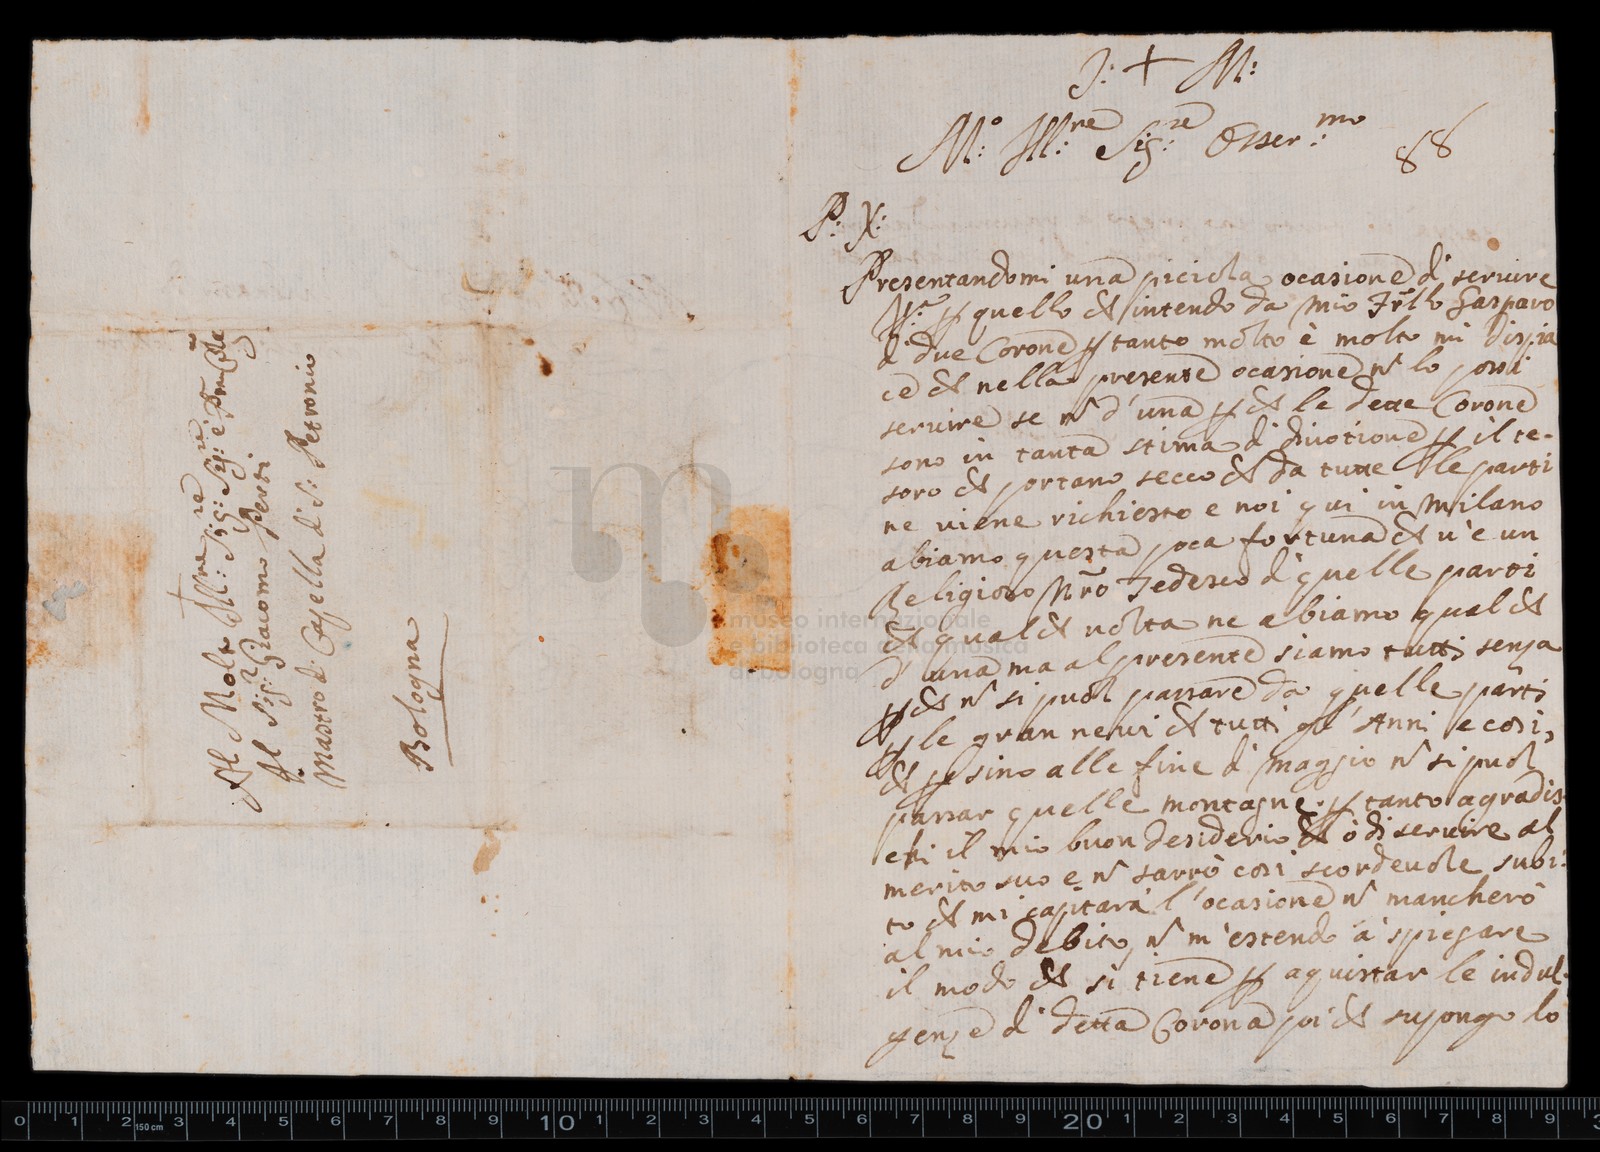 Al Molto Ill:re Sig:re Sig:re e P̃ron Col:mo
Al Sig:r Giacomo Perti
Mastro di Capella di S: Petronio
Bologna
J: + M:
M:o Ill:re Sig:re Osser:mo
88
P: X:
Presentandomi una piciola ocasione di servire
quello che intendo da mio Fr̃llo Gasparo
di due Corone p tanto molto è molto mi dispia
ce che nella presente ocasione ñ lo possi
servire se ñ d'una p che le dette Corone
sono in tanta stima di divotione p il te-
soro che portano secco che da tutte le parti
ne viene richiesto e noi qui in Milano
abiamo questa poca fortuna che v'è un
Religioso Ñro Tedesco di quelle parti
che qualche volta ne abiamo qualche
d'una ma al presente siamo tutti senza
p che ñ si puol passare da quelle parti
p le gran nevi che tutti gl'Anni e così,
che p sino alle fine di maggio ñ si puol
passar quelle montagne. p tanto agradis
chi il mio buon desiderio che ò di servire al
merito suo e ñ sarrò così scordevole subi:
to che mi capitarà l'ocasione ñ mancherò
al mio debito, ñ m'estendo à spiegare
il modo che si tiene p aquistar le indul-
genze di detta Corona poi che supongo lo
museo internazionale
e biblioteca della musica
di bologna
0 1 2 3 4 5 6 7 8 9 10 1 2 3 4 5 6 7 8 9 20 1 2 3 4 5 6 7 8 9 3
150 cm